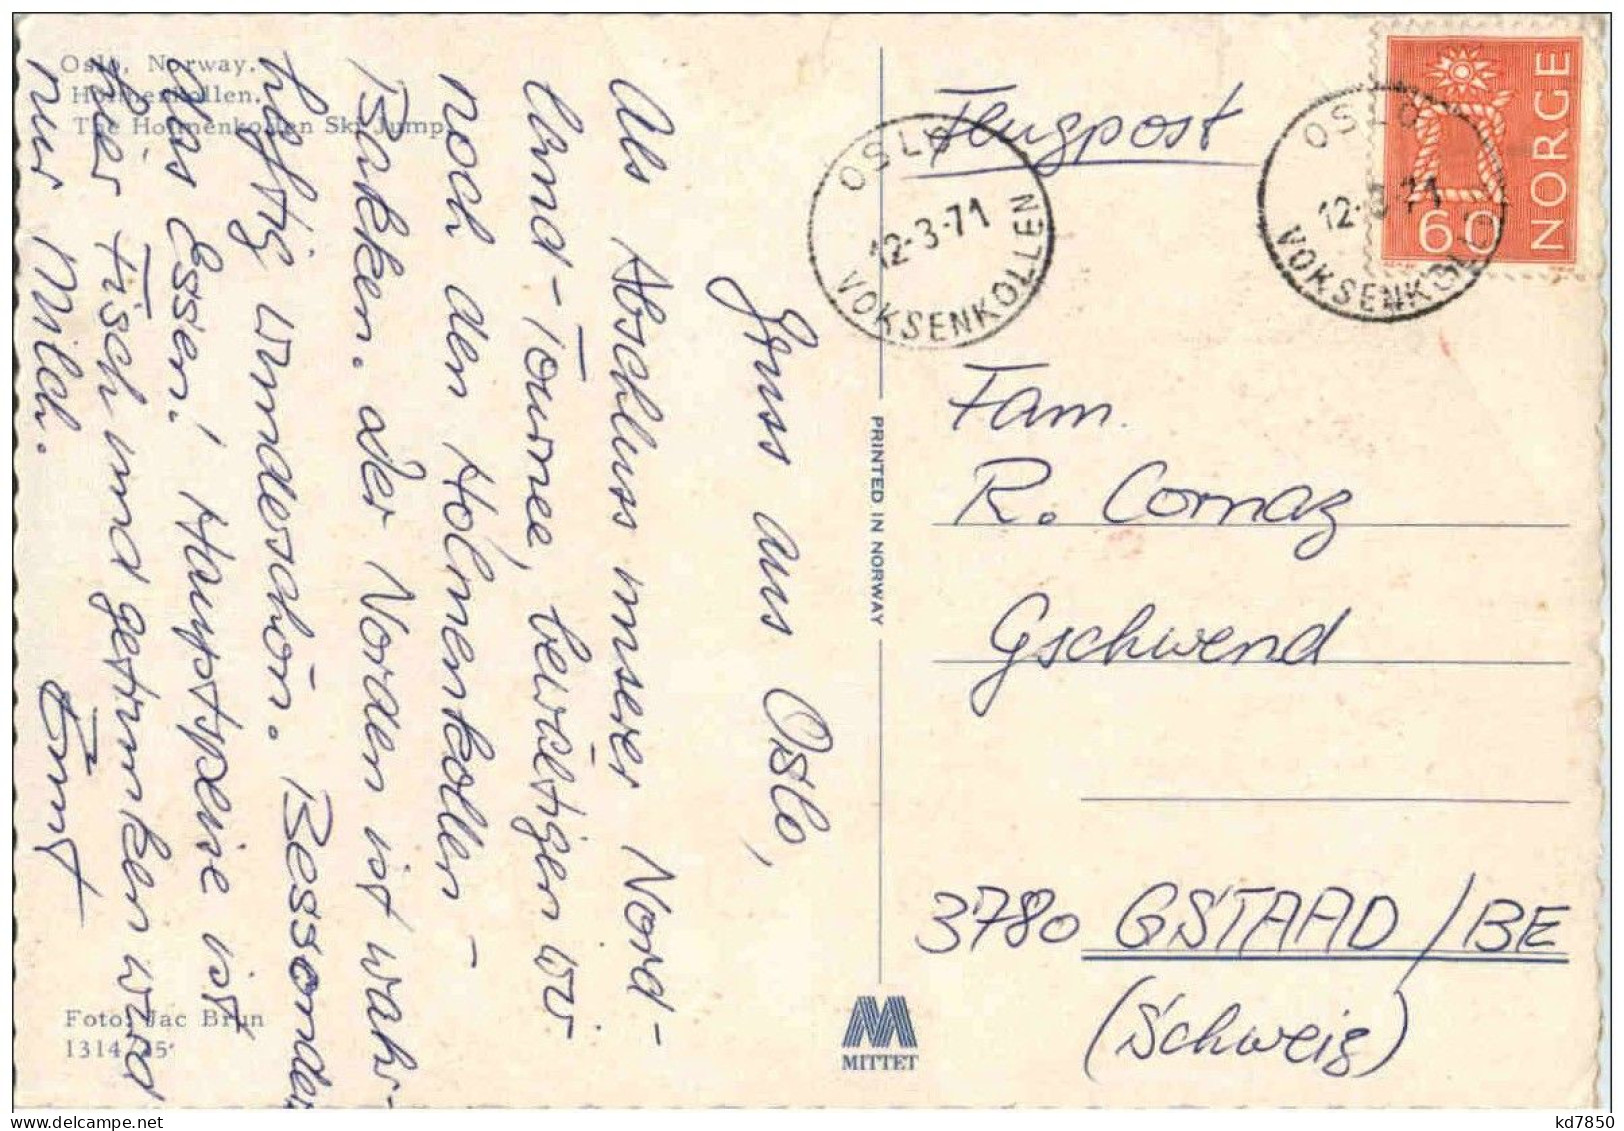 Oslo, Norway.
Holmenkollen.
The Holmenkollen Ski Jump
Gruss aus Oslo,
Als Abschluss unserer Nord-
land-Tournee, bewältigen wir
noch den Holmenkollen-
Bakken. Der Norden ist wahr-
haftig wunderschön. Bessonders
das Essen! Hauptspeise ist
hier Fisch und getrunken wird
nur Milch.
Ernst
Foto: Jac Brun
PRINTED IN NORWAY
MITTET
Flugpost
OSLO
12-3-71
VOKSENKOLLEN
OSLO
12-3-71
VOKSENKOLLEN
NORGE
60
Fam.
R. Cornaz
Gschwend
3780 GSTAAD/BE
(Schweiz)
kd7850